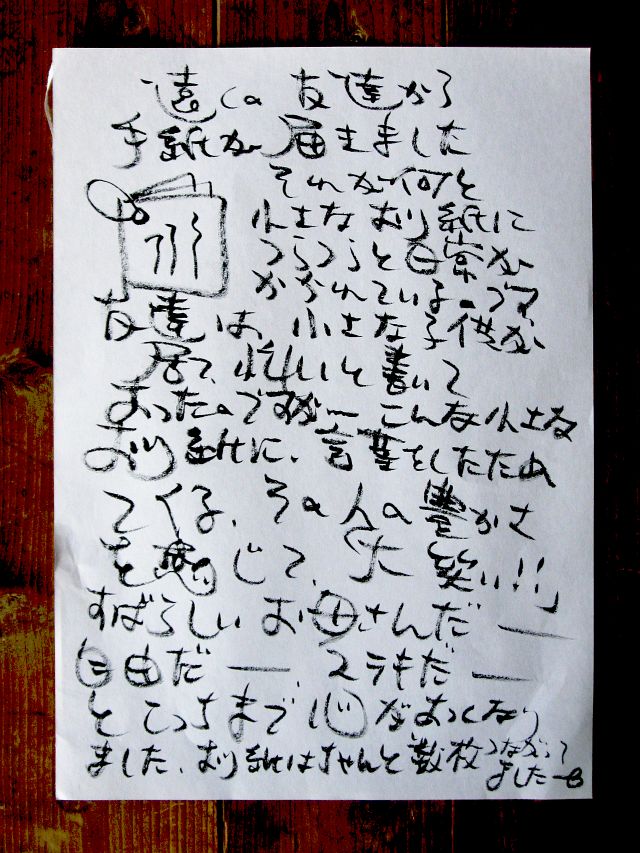 遠くの友達から
手紙が届きました
それが何と
小さなおり紙に
つらつらと日常が
かかれているのです
友達は、小さな子供が
居て、忙しいと書いて
あったのですが〜こんな小さな
おり紙に、言葉をしたため
てくる、その人の豊かさ
を感じて、「大笑い!!」
すばらしいお母さんだー
自由だー、ステキだー
とこっちまで心があつくなり
ました、おり紙はちゃんと数枚つながって
ましたー